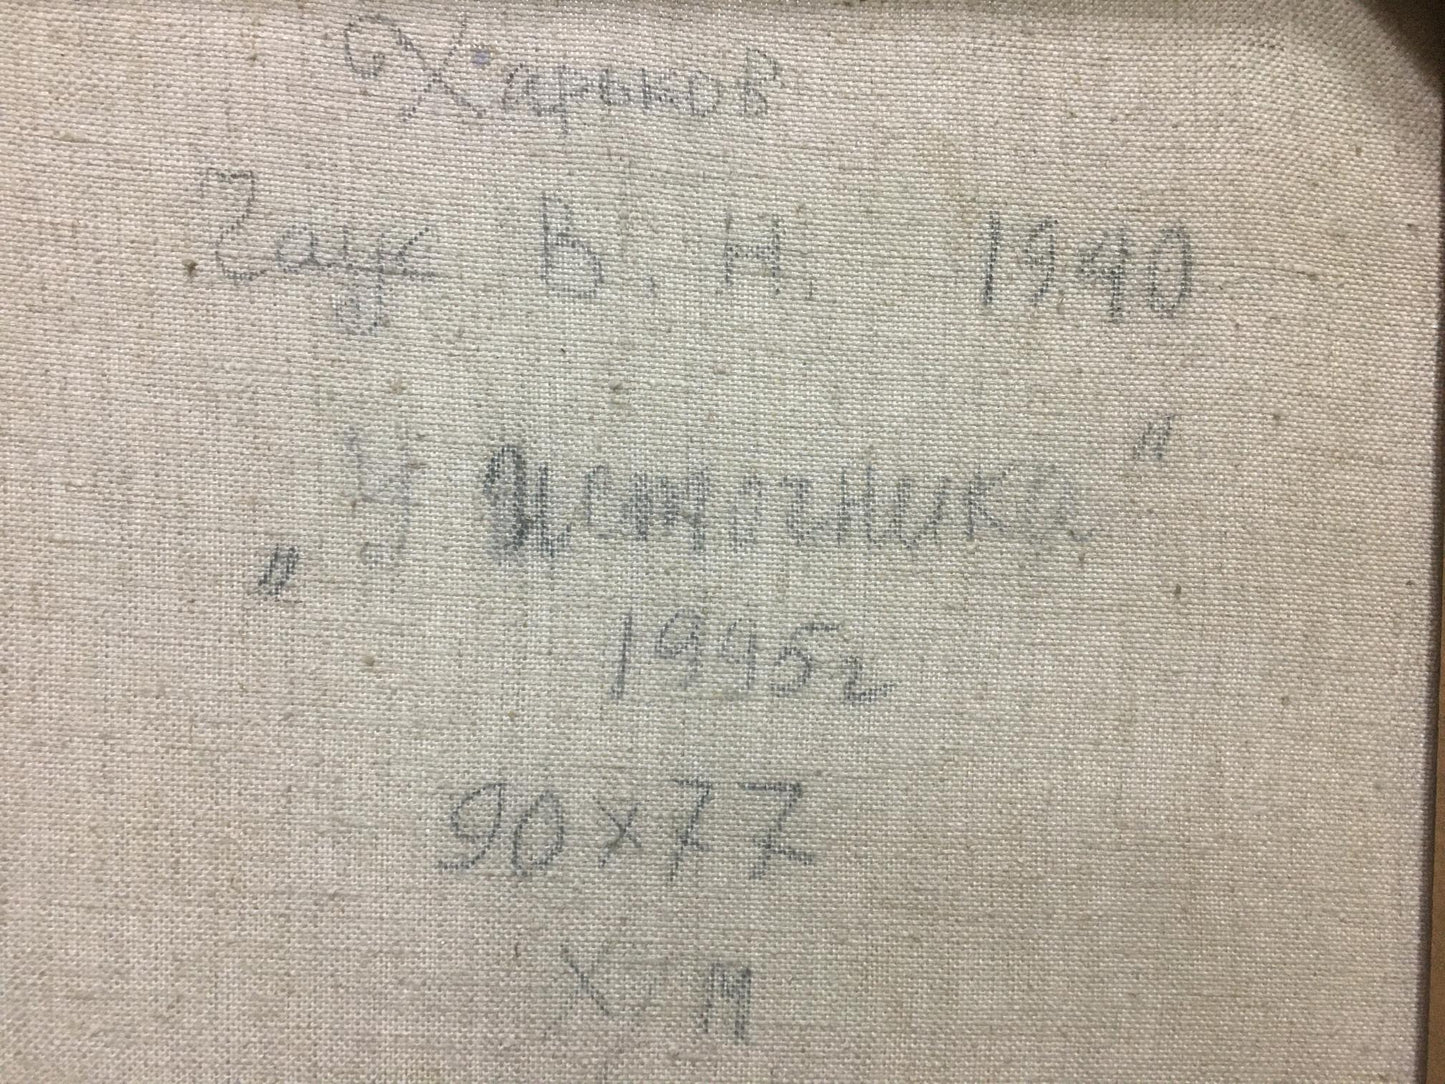 Харьков
Гаук В. Н. 1940
„У источника"
1995г
90х77
х м